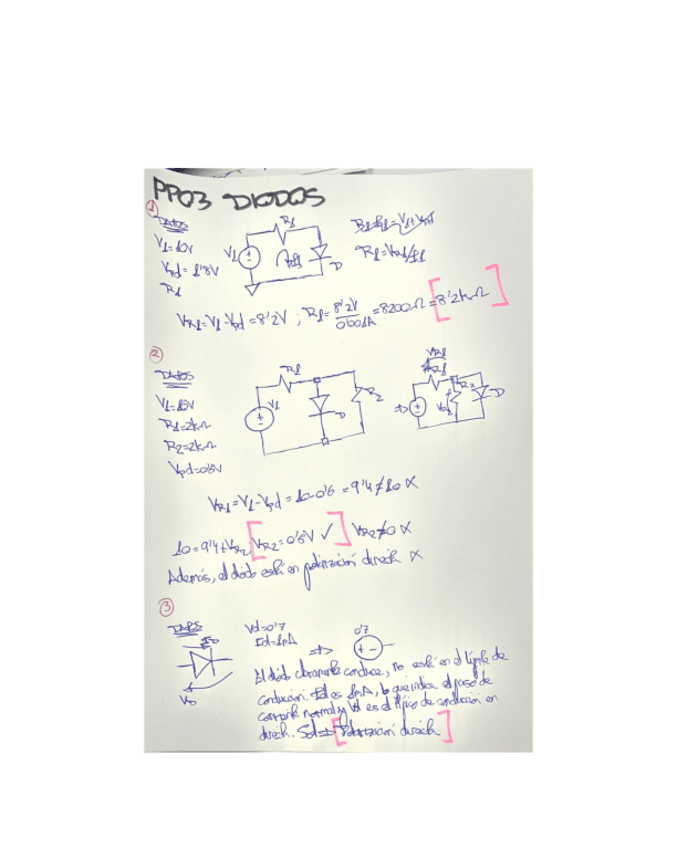 PP03 DIODOS
1
DATOS
V1=10V
Vγd=1'8V
R1
R1
V1
D
R1=VR1/I1
VR1=V1-Vγd=8'2V ; R1= 8'2V / 0'001A =8200Ω=[8'2kΩ]
2
DATOS
R1=2kΩ
R2=2kΩ
R1
V1
D
R2
VR1
R1
R2
D
VR1=V1-Vγd=10-0'6=9'4≠10 X
VR2≠0 X
Además, el diodo está en polarización directa X
3
DATOS
ID
VD
Vd=0'7
Id=1mA
⇒
0'7
+ -
El diodo claramente conduce, no está en el límite de
conducción. Id es 1mA, lo que indica el paso de
corriente normal y Vd es el típico de conducción en
directa. Sol⇒[Polarización directa]